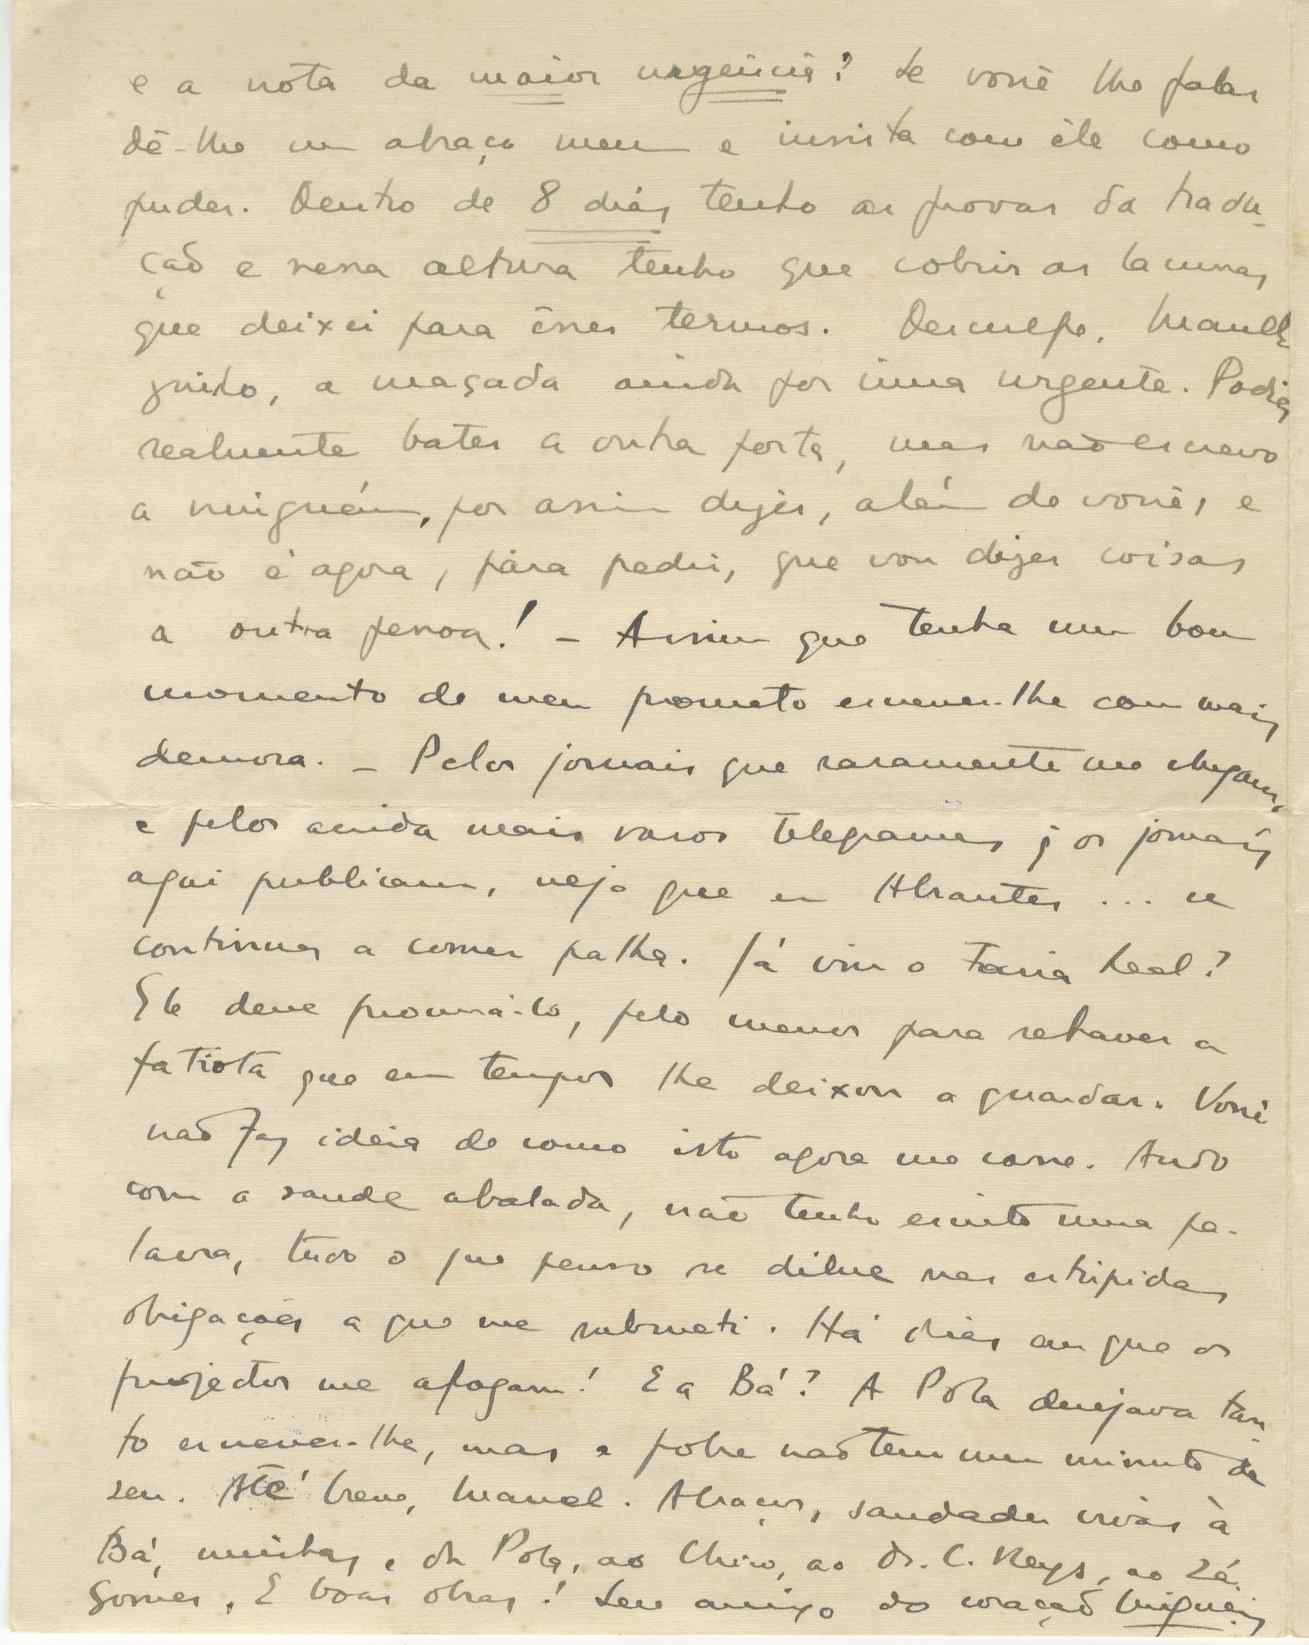 e a nota da maior urgência? Se você lhe falar
dê-lhe um abraço meu e insista com êle como
puder. Dentro de 8 dias tenho as provas da tradu-
ção e nessa altura tenho que cobrir as lacunas
que deixei para êsses termos. Desculpe, Manel-
zinho, a maçada ainda por cima urgente. Podia
realmente bater a outra porta, mas não escrevo
a ninguém, por assim dizer, além de vocês, e
não é agora, para pedir, que vou dizer coisas
a outra pessoa! – Assim que tenha um bom
momento de meu prometo escrever-lhe com mais
demora. – Pelos jornais que raramente me chegam,
e pelos ainda mais raros telegramas q̃ os jornais
aqui publicam, vejo que em Abrantes ... se
continua a comer palha. Já viu o Faria Leal?
Ele deve procurá-lo, pelo menos para rehaver a
fatiota que em tempos lhe deixou a guardar. Você
não faz ideia de como isto agora me corre. Ando
com a saude abalada, não tenho escrito uma pa-
lavra, tudo o que penso se dilue nas estupidas
obrigações a que me submeti. Há dias em que os
projectos me afogam! E a Bá? A Pola desejava tan-
to escrever-lhe, mas a pobre não tem um minuto de
seu. Até breve, Manel. Abraços, saudades vivas à
Bá, minhas e da Pola, ao Chico, ao Dr. C. Reys, ao Zé
Gomes. E boas obras! Seu amigo do coração Migueis